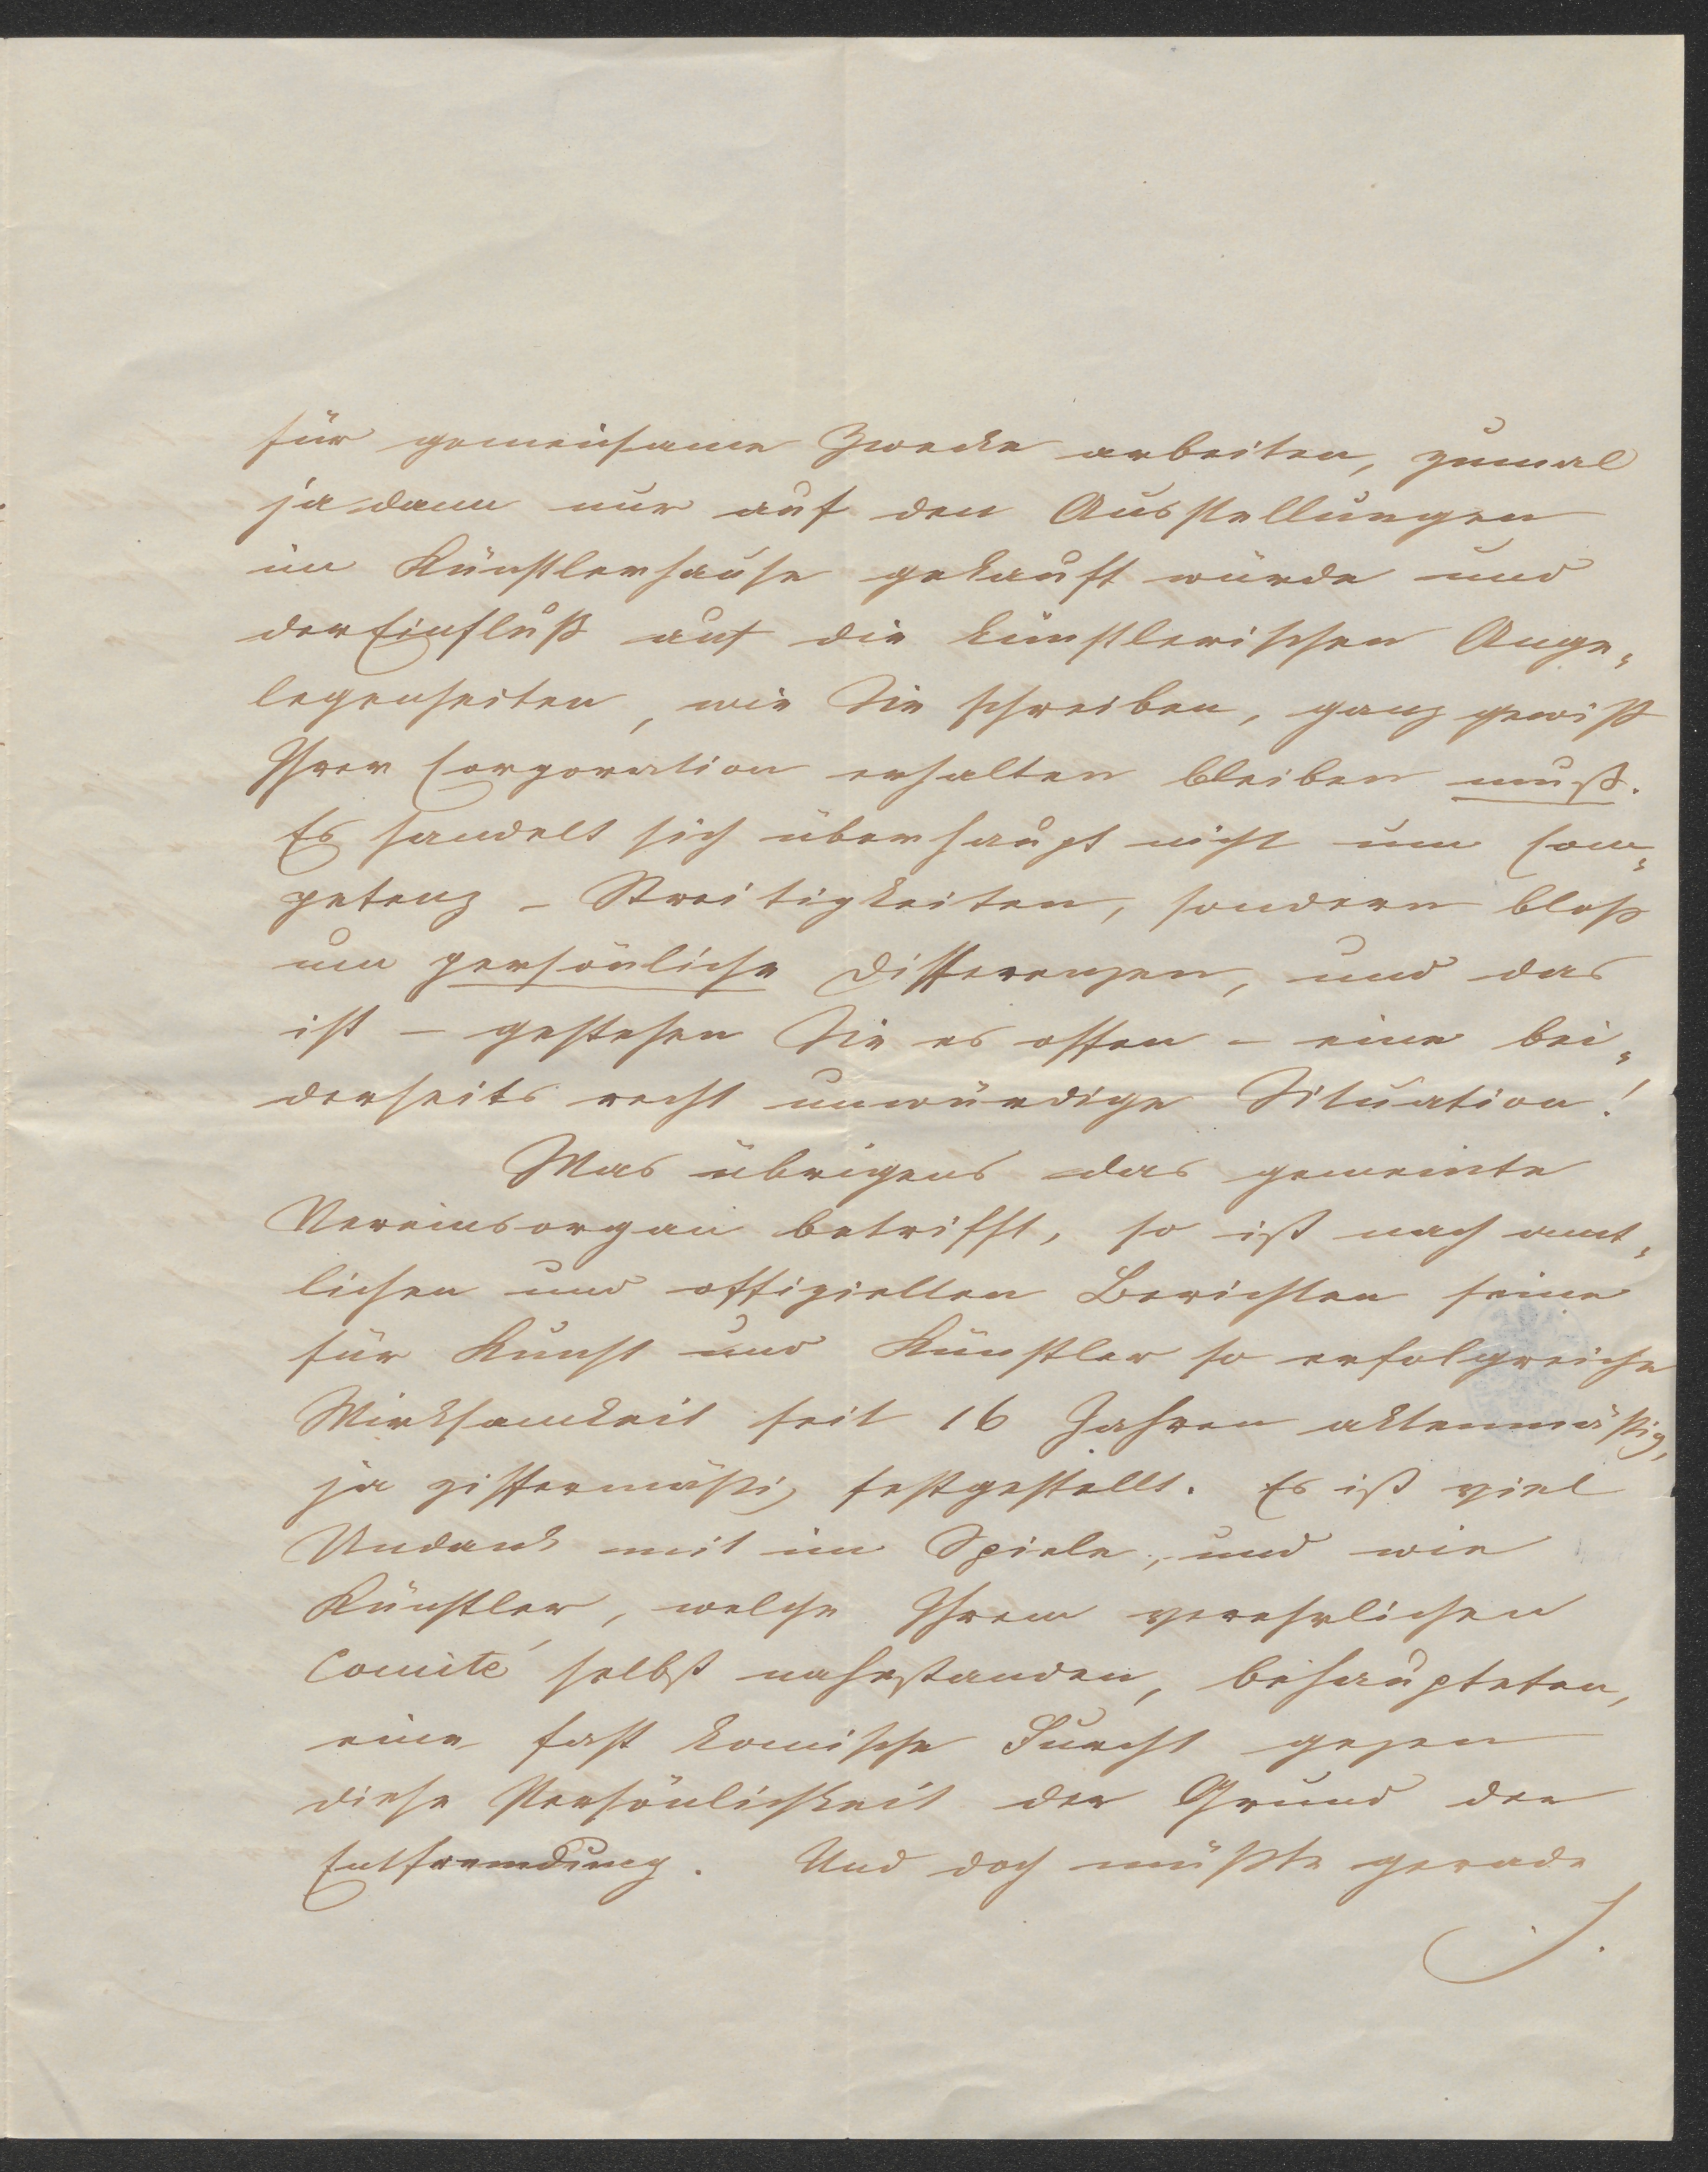 für gemeinsame Zwecke arbeiten, zumal
ja dann nur auf den Ausstellungen
im Künstlerhause gekauft würde und
der Einfluß auf die künstlerischen Ange-
legenheiten, wie Sie schreiben, ganz gewiß
Ihrer Corporation erhalten bleiben muß.
Es handelt sich überhaupt nicht um Com-
petenz - Streitigkeiten, sondern bloß
um persönliche Differenzen, und das
ist – gestehen Sie es offen – eine bei-
derseits recht unwürdige Situation!
Was übrigens das gemeinte
Vereinsorgan betrifft, so ist nach amt-
lichen und offiziellen Berichten seine
für Kunst und Künstler so erfolgreiche
Wirksamkeit seit 16 Jahren aktenmäßig,
ja ziffermäßig festgestellt. Es ist viel
Undank mit im Spiele, und wie
Künstler, welche Ihrem verehrlichen
Comité selbst nahestanden, behaupteten,
eine fast komische Furcht gegen
diese Persönlichkeit der Grund der
Entfremdung. Und doch müßte gerade